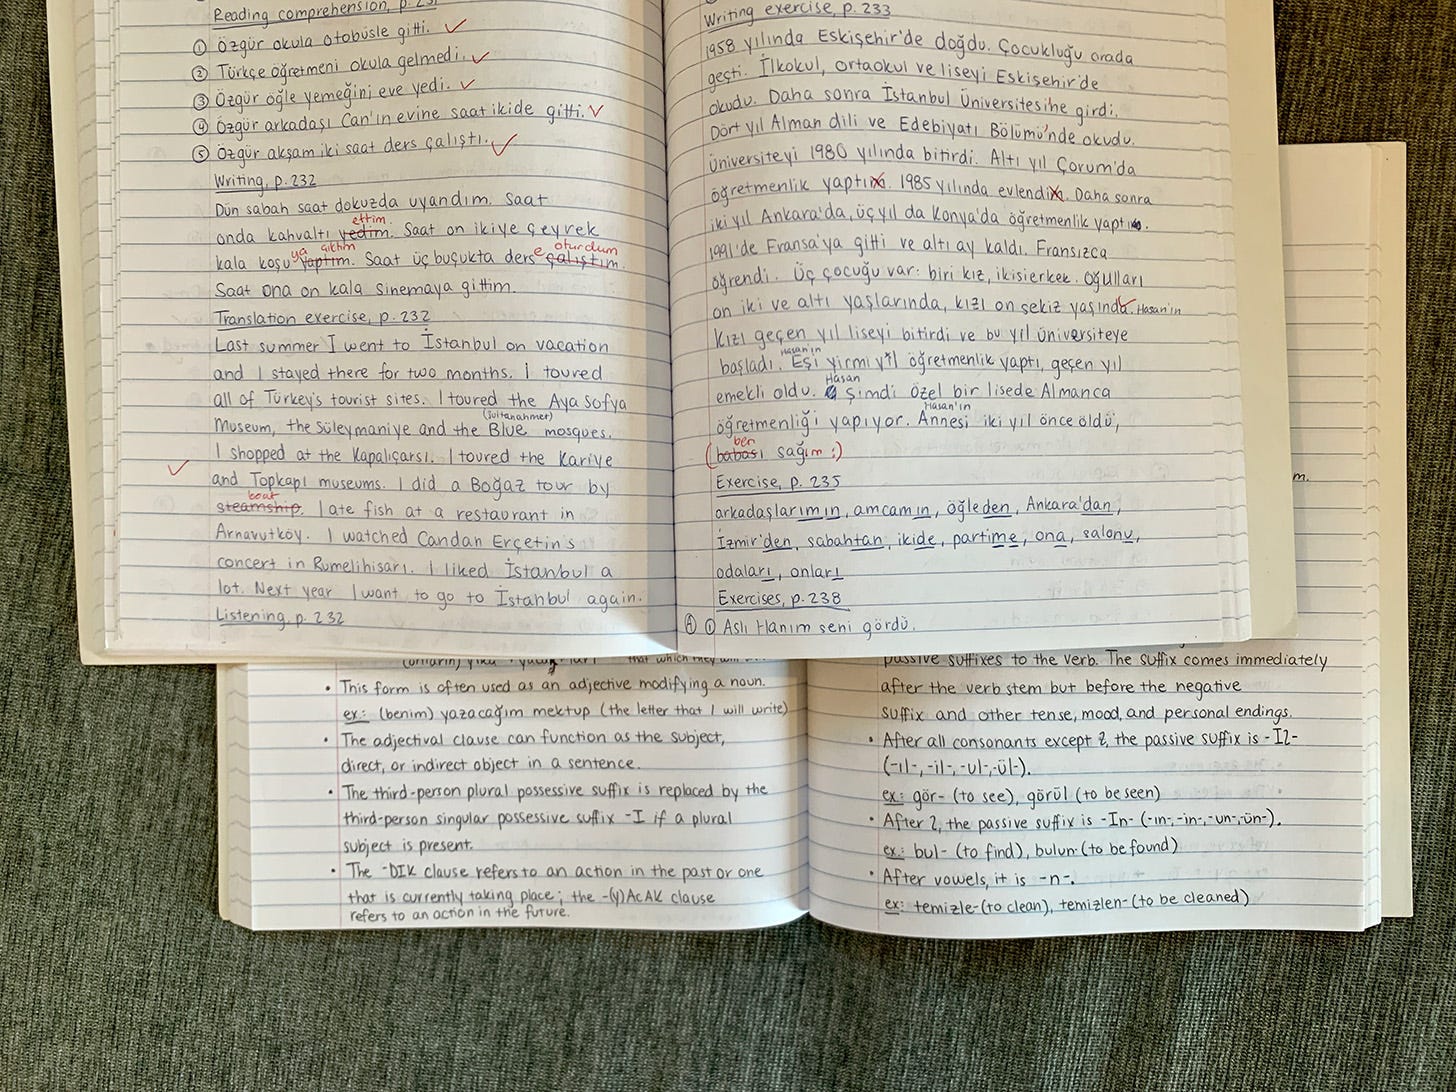 Reading comprehension, p. 231
① Özgür okula otobüsle gitti. ✓
② Türkçe öğretmeni okula gelmedi. ✓
③ Özgür öğle yemeğini eve yedi. ✓
④ Özgür arkadaşı Can'ın evine saat ikide gitti. ✓
⑤ Özgür akşam iki saat ders çalıştı. ✓
Writing, p. 232
Dün sabah saat dokuzda uyandım. Saat
ettim
onda kahvaltı yedim. Saat on ikiye çeyrek
ya çıktım e oturdum
kala koşu yaptım. Saat üç buçukta ders çalıştım.
Saat ona on kala sinemaya gittim.
Translation exercise, p. 232
Last summer I went to İstanbul on vacation
and I stayed there for two months. I toured
all of Turkey's tourist sites. I toured the Aya Sofya
(Sultanahmet)
Museum, the Süleymaniye and the Blue mosques.
I shopped at the Kapalıçarşı. I toured the Kariye
✓ and Topkapı museums. I did a Boğaz tour by
boat
steamship. I ate fish at a restaurant in
Arnavutköy. I watched Candan Erçetin's
concert in Rumelihisarı. I liked İstanbul a
lot. Next year I want to go to İstanbul again.
Listening, p. 232
Writing exercise, p. 233
1958 yılında Eskişehir'de doğdu. Çocukluğu orada
geçti. İlkokul, ortaokul ve liseyi Eskişehir'de
okudu. Daha sonra İstanbul Üniversitesi'ne girdi.
Dört yıl Alman dili ve Edebiyatı Bölümü'nde okudu.
Üniversiteyi 1980 yılında bitirdi. Altı yıl Çorum'da
öğretmenlik yaptı. 1985 yılında evlendi. Daha sonra
iki yıl Ankara'da, üç yıl da Konya'da öğretmenlik yaptı.
1991'de Fransa'ya gitti ve altı ay kaldı. Fransızca
öğrendi. Üç çocuğu var: biri kız, ikisi erkek. Oğulları
on iki ve altı yaşlarında, kızı on sekiz yaşında. Hasan'ın
kızı geçen yıl liseyi bitirdi ve bu yıl üniversiteye
Hasan'ın
başladı. Eşi yirmi yıl öğretmenlik yaptı, geçen yıl
Hasan
emekli oldu. Şimdi özel bir lisede Almanca
Hasan'ın
öğretmenliği yapıyor. Annesi iki yıl önce öldü,
ben
(babası sağım :)
Exercise, p. 235
arkadaşlarımın, amcamın, öğleden, Ankara'dan,
İzmir'den, sabahtan, ikide, partime, ona, salonu,
odaları, onları
Exercises, p. 238
Ⓐ ① Aslı Hanım seni gördü.
m.
that which they will
• This form is often used as an adjective modifying a noun.
ex: (benim) yazacağım mektup (the letter that I will write)
• The adjectival clause can function as the subject,
direct, or indirect object in a sentence.
• The third-person plural possessive suffix is replaced by the
third-person singular possessive suffix -I if a plural
subject is present.
• The -DIK clause refers to an action in the past or one
that is currently taking place; the -(y)AcAK clause
refers to an action in the future.
passive suffixes to the verb. The suffix comes immediately
after the verb stem but before the negative
suffix and other tense, mood, and personal endings.
• After all consonants except l, the passive suffix is -Il-
(-ıl-, -il-, -ul-, -ül-).
ex: gör- (to see), görül (to be seen)
• After l, the passive suffix is -In- (-ın-, -in-, -un-, -ün-).
ex: bul- (to find), bulun- (to be found)
• After vowels, it is -n-.
ex: temizle- (to clean), temizlen- (to be cleaned)